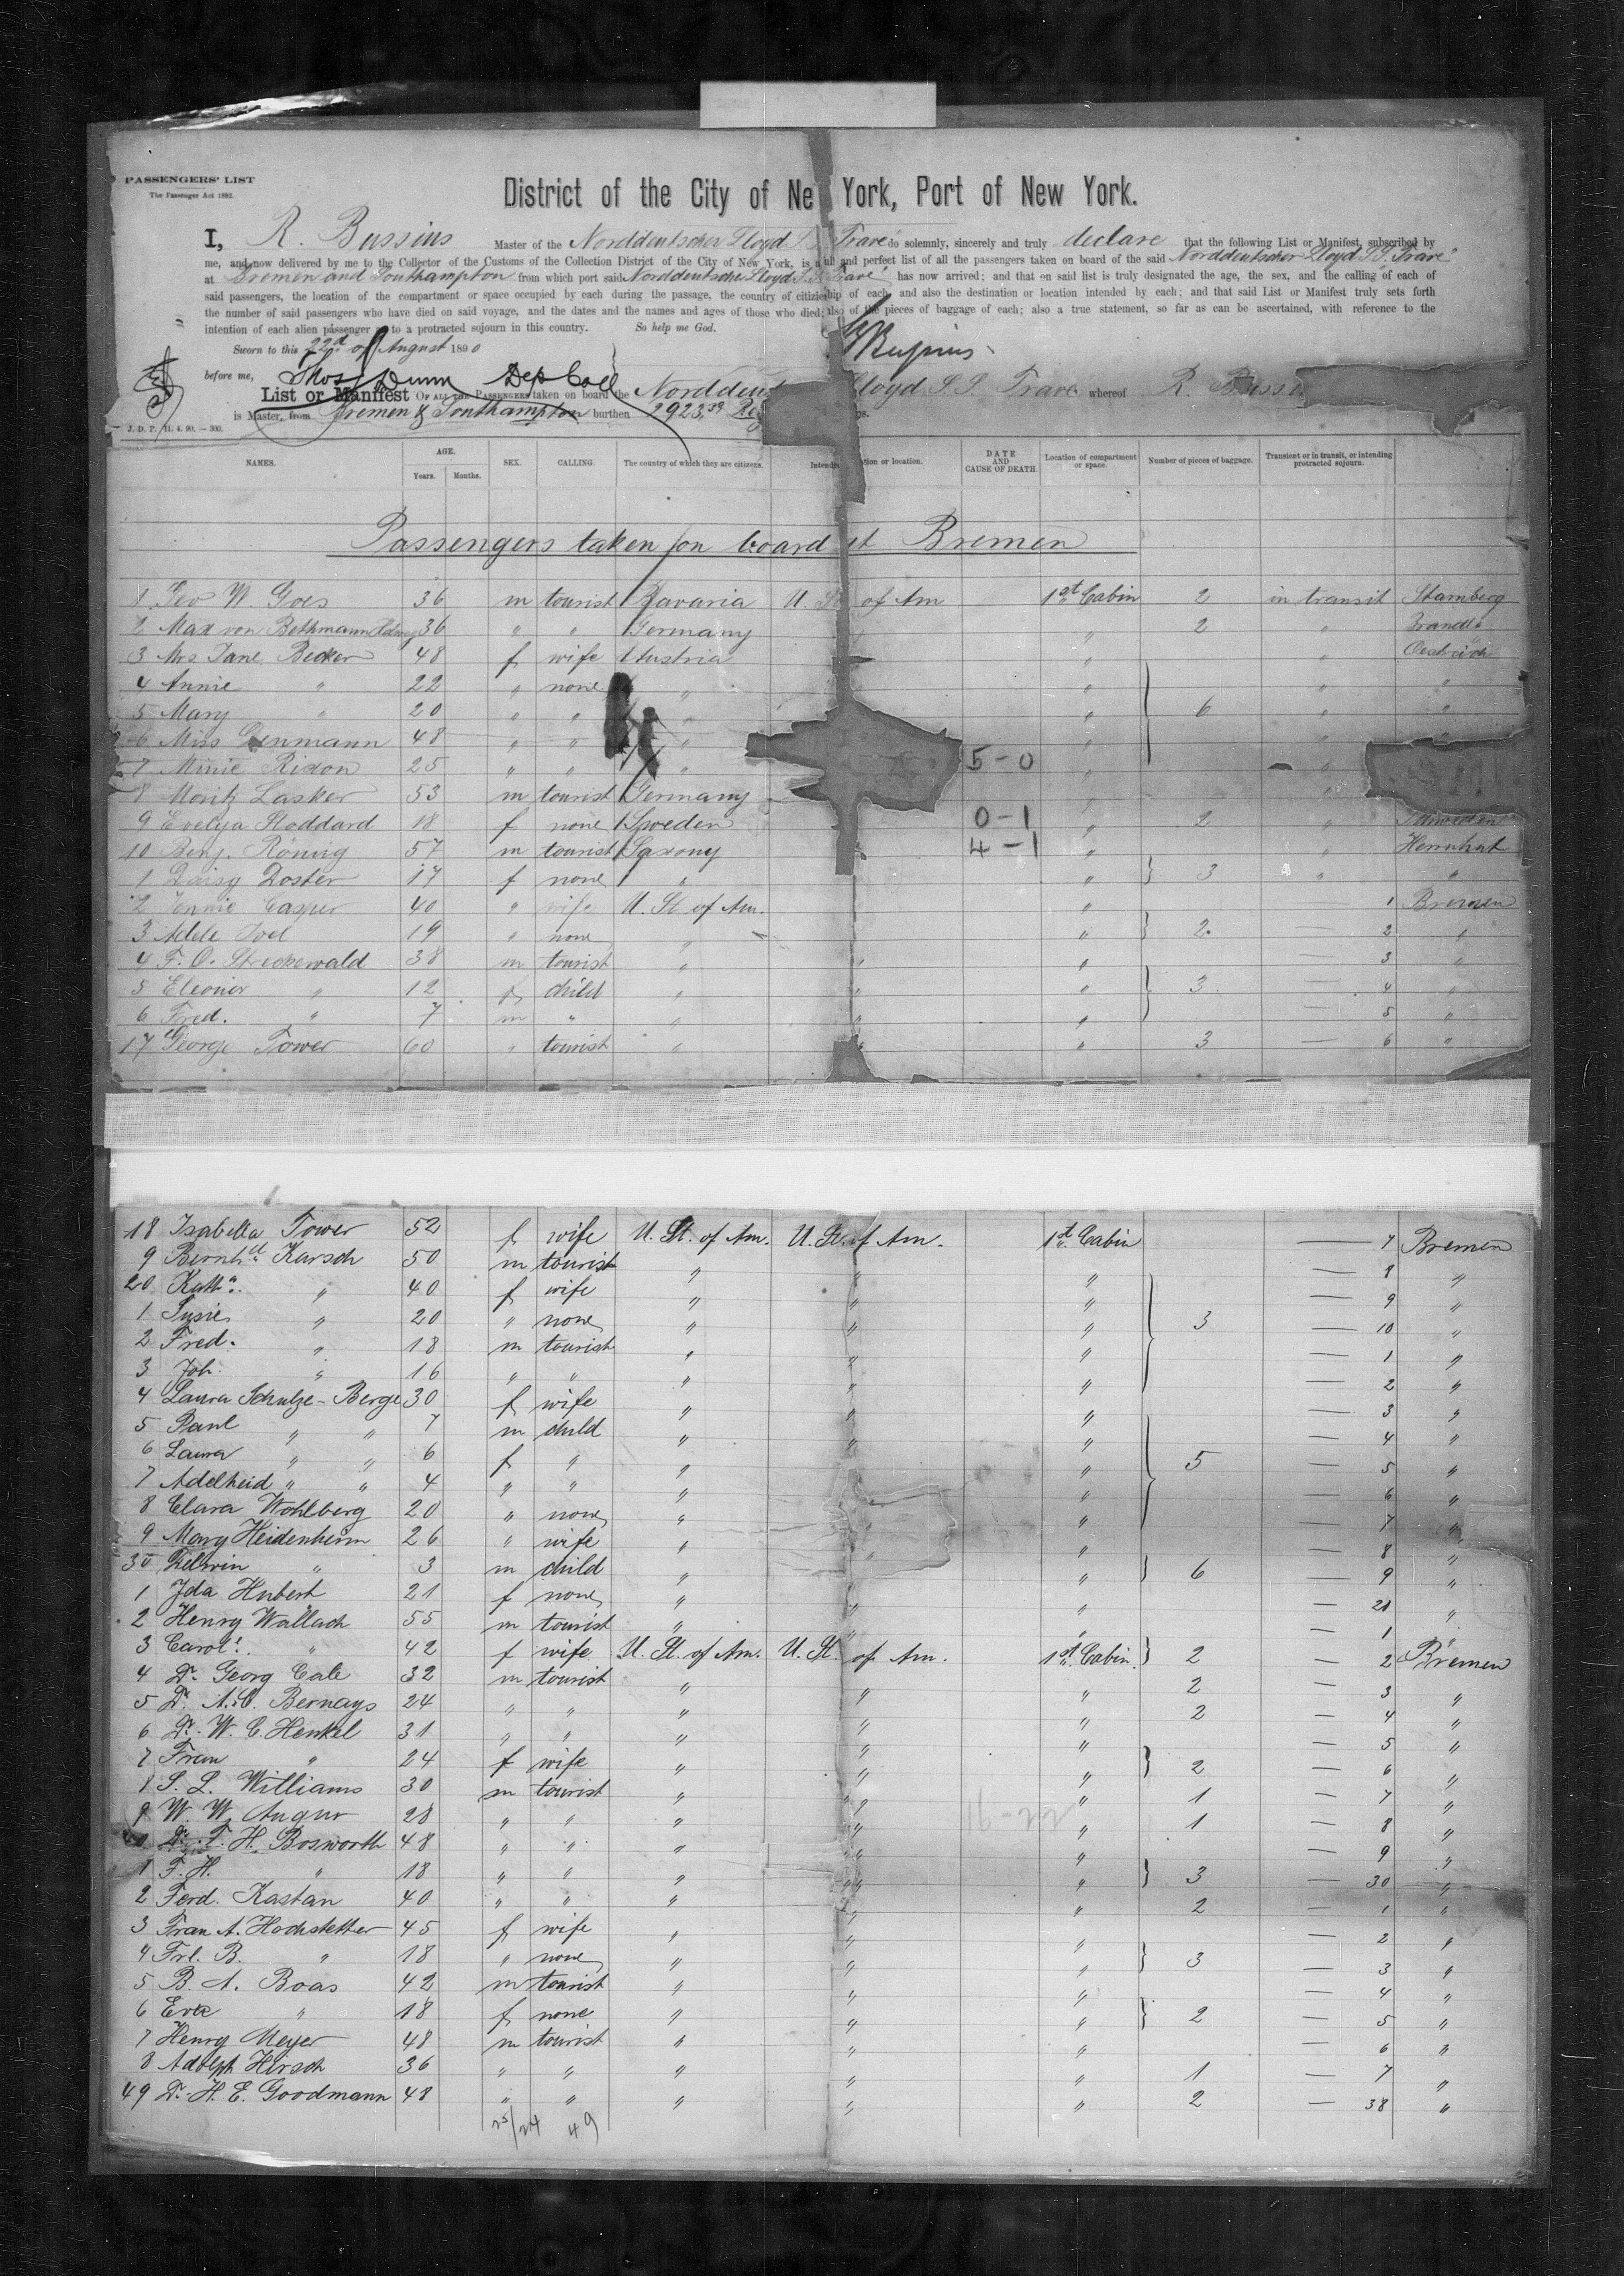 PASSENGERS' LIST
The Passenger Act 1882.
District of the City of Ne York, Port of New York.
I, R. Bussius Master of the Norddeutscher Lloyd S. S. Trave do solemnly, sincerely and truly declare that the following List or Manifest, subscribed by
me, and now delivered by me to the Collector of the Customs of the Collection District of the City of New York, is a full and perfect list of all the passengers taken on board of the said Norddeutscher Lloyd S.S. Trave
at Bremen and Southampton from which port said Norddeutscher Lloyd S.S. Trave has now arrived; and that on said list is truly designated the age, the sex, and the calling of each of
said passengers, the location of the compartment or space occupied by each during the passage, the country of citizenship of each, and also the destination or location intended by each; and that said List or Manifest truly sets forth
the number of said passengers who have died on said voyage, and the dates and the names and ages of those who died; also of the pieces of baggage of each; also a true statement, so far as can be ascertained, with reference to the
intention of each alien passenger as to a protracted sojourn in this country. So help me God.
Sworn to this 22d of August 1890
before me, Thos J Dunn Dep Coll
List or Manifest OF ALL THE PASSENGERS taken on board the Norddeut Lloyd S.S. Trave whereof R. Bussi
is Master, from Bremen & Southampton burthen 2923 Reg
J. D. P. 11. 4. 90. — 300.
NAMES. AGE. Years. Months. SEX. CALLING. The country of which they are citizens. Intend tion or location. DATE AND CAUSE OF DEATH. Location of compartment or space. Number of pieces of baggage. Transient or in transit, or intending protracted sojourn.
Passengers taken on board at Bremen
1 Geo W. Goes 36 m tourist Bavaria U. St of Am 1st Cabin 2 in transit Starnberg
2 Max von Bethmann Holweg 36 " " Germany " 2 "
3 Mrs Jane Becker 48 f wife Austria " "
4 Annie " 22 " none " " " "
5 Mary " 20 " " " " 6 " "
6 Miss Denmann 48 " " " " " "
7 Minie Rixon 25 " " " 5-0 " "
8 Moritz Lasker 53 m tourist Germany " "
9 Evelya Stoddard 18 f none Sweden 0-1 " 2 " Schweden
10 Benj. Römig 57 m tourist Saxony 4-1 " " Herrnhut
1 Daisy Doster 17 f none " " 3 " "
2 Jennie Casper 40 " wife U. St. of Am. " 1 Bremen
3 Adele Joel 19 " none " " 2 — 2 "
4 F. O. Streckewald 38 m tourist " " " — 3 "
5 Eleonor " 12 f child " " " 3 — 4 "
6 Fred. " 7 m " " " " — 5 "
17 George Tower 60 " tourist " " " 3 — 6 "
18 Isabella Tower 52 f wife U. St. of Am. U. St. of Am. 1st Cabin — 7 Bremen
9 Bernhd Karsch 50 m tourist " " " — 8 "
20 Katha " 40 f wife " " " — 9 "
1 Susie " 20 " none " " " 3 — 10 "
2 Fred. " 18 m tourist " " " — 1 "
3 Joh. " 16 " " " " " — 2 "
4 Laura Schulze-Berge 30 f wife " " " — 3 "
5 Paul " " 7 m child " " " — 4 "
6 Laura " " 6 f " " " " 5 — 5 "
7 Adelheid " " 4 " " " " " — 6 "
8 Clara Wohlberg 20 " none " " " — 7 "
9 Mary Heidenheim 26 " wife " " " — 8 "
30 Edwin " 3 m child " " " 6 — 9 "
1 Ida Hubert 21 f none " " " — 20 "
2 Henry Wallach 55 m tourist " " " — 1 "
3 Carol. " 42 f wife U. St. of Am. U. St. of Am. 1st Cabin 2 — 2 Bremen
4 Dr. Georg Cale 32 m tourist " " " 2 — 3 "
5 Dr. A. C. Bernays 24 " " " " " 2 — 4 "
6 Dr. W. C. Henkel 31 " " " " " — 5 "
7 Frau " 24 f wife " " " 2 — 6 "
8 S. L. Williams 30 m tourist " " " 1 — 7 "
9 W. W. Augur 28 " " " " " 1 — 8 "
Dr. F. H. Bosworth 48 " " " " " — 9 "
1 F. H. " 18 " " " " " 3 — 30 "
2 Ferd. Kastan 40 " " " " " 2 — 1 "
3 Frau A. Hochstetter 45 f wife " " " — 2 "
4 Frl. B. " 18 " none " " " 3 — 3 "
5 B. A. Boas 42 m tourist " " " — 4 "
6 Eva " 18 f none " " " 2 — 5 "
7 Henry Meyer 48 m tourist " " " — 6 "
8 Adolph Hirsch 36 " " " " " 1 — 7 "
49 Dr. H. E. Goodmann 48 " " " " " 2 — 38 "
25/24 49